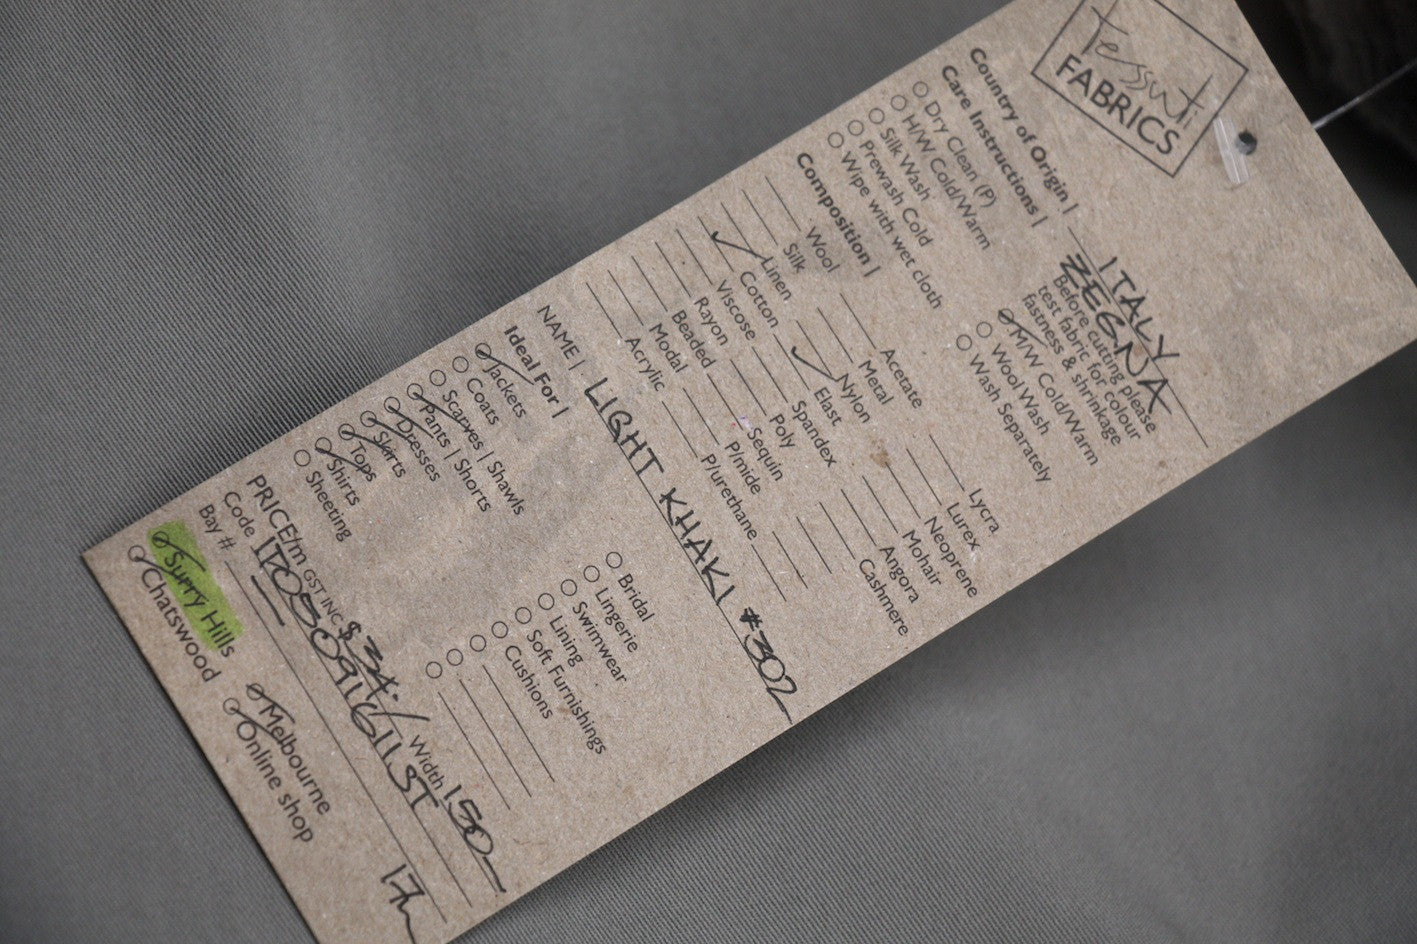 Tessuti
FABRICS
Country of Origin | ITALY
ZEGNA
Care Instructions |
Before cutting please
test fabric for colour
fastness & shrinkage
Dry Clean (P)
H/W Cold/Warm
Silk Wash
Prewash Cold
Wipe with wet cloth
M/W Cold/Warm
Wool Wash
Wash Separately
Composition |
Wool
Silk
Linen
Cotton
Viscose
Rayon
Beaded
Modal
Acrylic
Acetate
Metal
Nylon
Elast
Spandex
Poly
Sequin
P/mide
P/urethane
Lycra
Lurex
Neoprene
Mohair
Angora
Cashmere
NAME | LIGHT KHAKI #302
Ideal For |
Jackets
Coats
Scarves | Shawls
Pants | Shorts
Dresses
Skirts
Tops
Shirts
Sheeting
Bridal
Lingerie
Swimwear
Lining
Soft Furnishings
Cushions
PRICE/m GST INC $34. Width 150
Code
Bay #
17
Surry Hills
Chatswood
Melbourne
Online shop